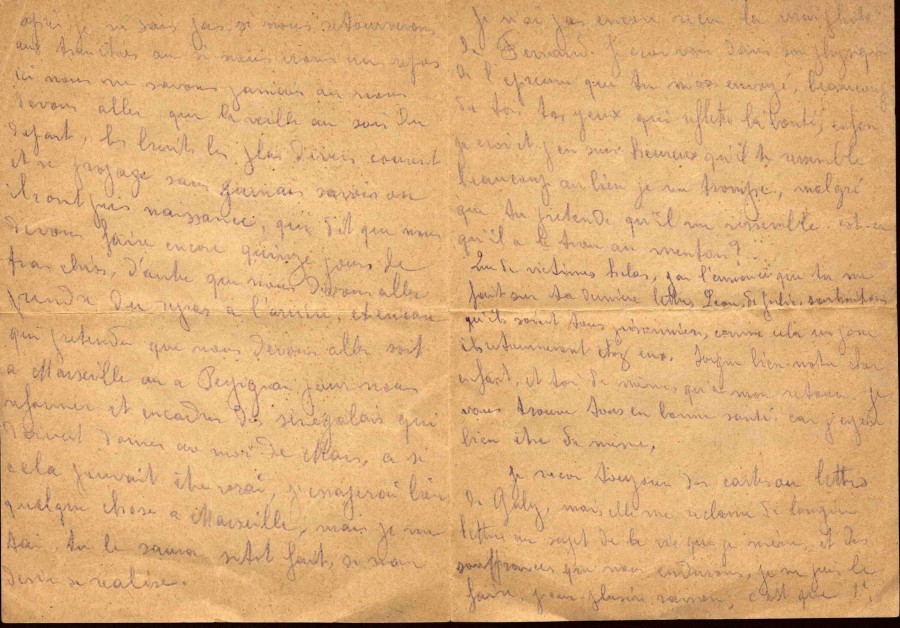 après je ne sais pas si nous retournerons
aux tranchées ou si nous irons au repos
ici nous ne savons jamais ou nous
devons aller que la veille au soir du
depart, les bruits les plus divers courent
et se propage sans jamais savoir ou
ils ont pris naissance, qui dit que nous
devons faire encore quinze jours de
tranchées, d'autre que nous devons aller
prendre du repos a l'arriere, et encore
qui pretendu que nous devons aller soit
a Marseille ou a pour nous
reformer et encadrer des senegalais qui
doivent au moi de Mars, a si
cela pouvait être vrai, j'essayerai bien
quelque chose a Marseille, mais je ne
sai, tu le saura sitot fait, si mon
desir se realise.
Je n'ai pas encore recu la
de Fernand. Je dans son physique
de l'epreuve que tu m'as envoyé, beaucoup
de toi, tes yeux qui reflette la bonté, enfin
je croi et j'en suis heureux qu'il te ressemble
beaucoup ou bien je me trompe, malgré
que tu pretende qu'il me ressemble. est-ce
qu'il a le trou au menton?
Que de victimes helas, par l'annonce que tu me
fait sur ta derniere lettre, Leon, de Julie, souhaitons
qu'ils soient tous prisonniers, comme cela un jour
ils retourneront chez eux. Soigne bien notre cher
enfant, et toi de même qu'a mon retour je
vous trouve tous en bonne santé car j'espère
bien être de même.
Je recoi toujours des cartes ou lettres
de Gaby, mais elle me reclame de longue
lettre au sujet de la vie que je mène, et des
souffrances que nous endurons, je ne puis le
faire pour plusieur raison, c'est que